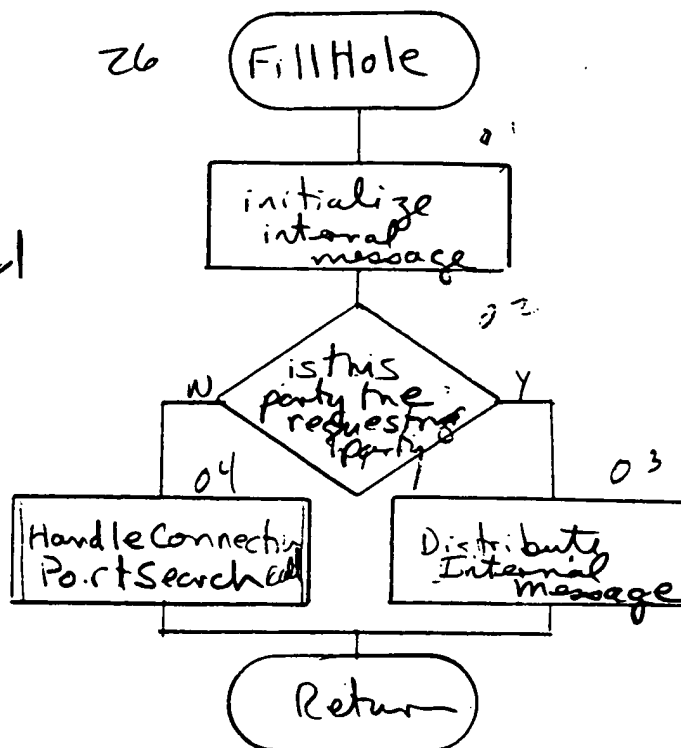 26
FillHole
01
initialize
internal
message
02
is this
party the
requesting
party
N
Y
04
03
HandleConnection
PortSearch Call
Distribute
Internal
Message
Return